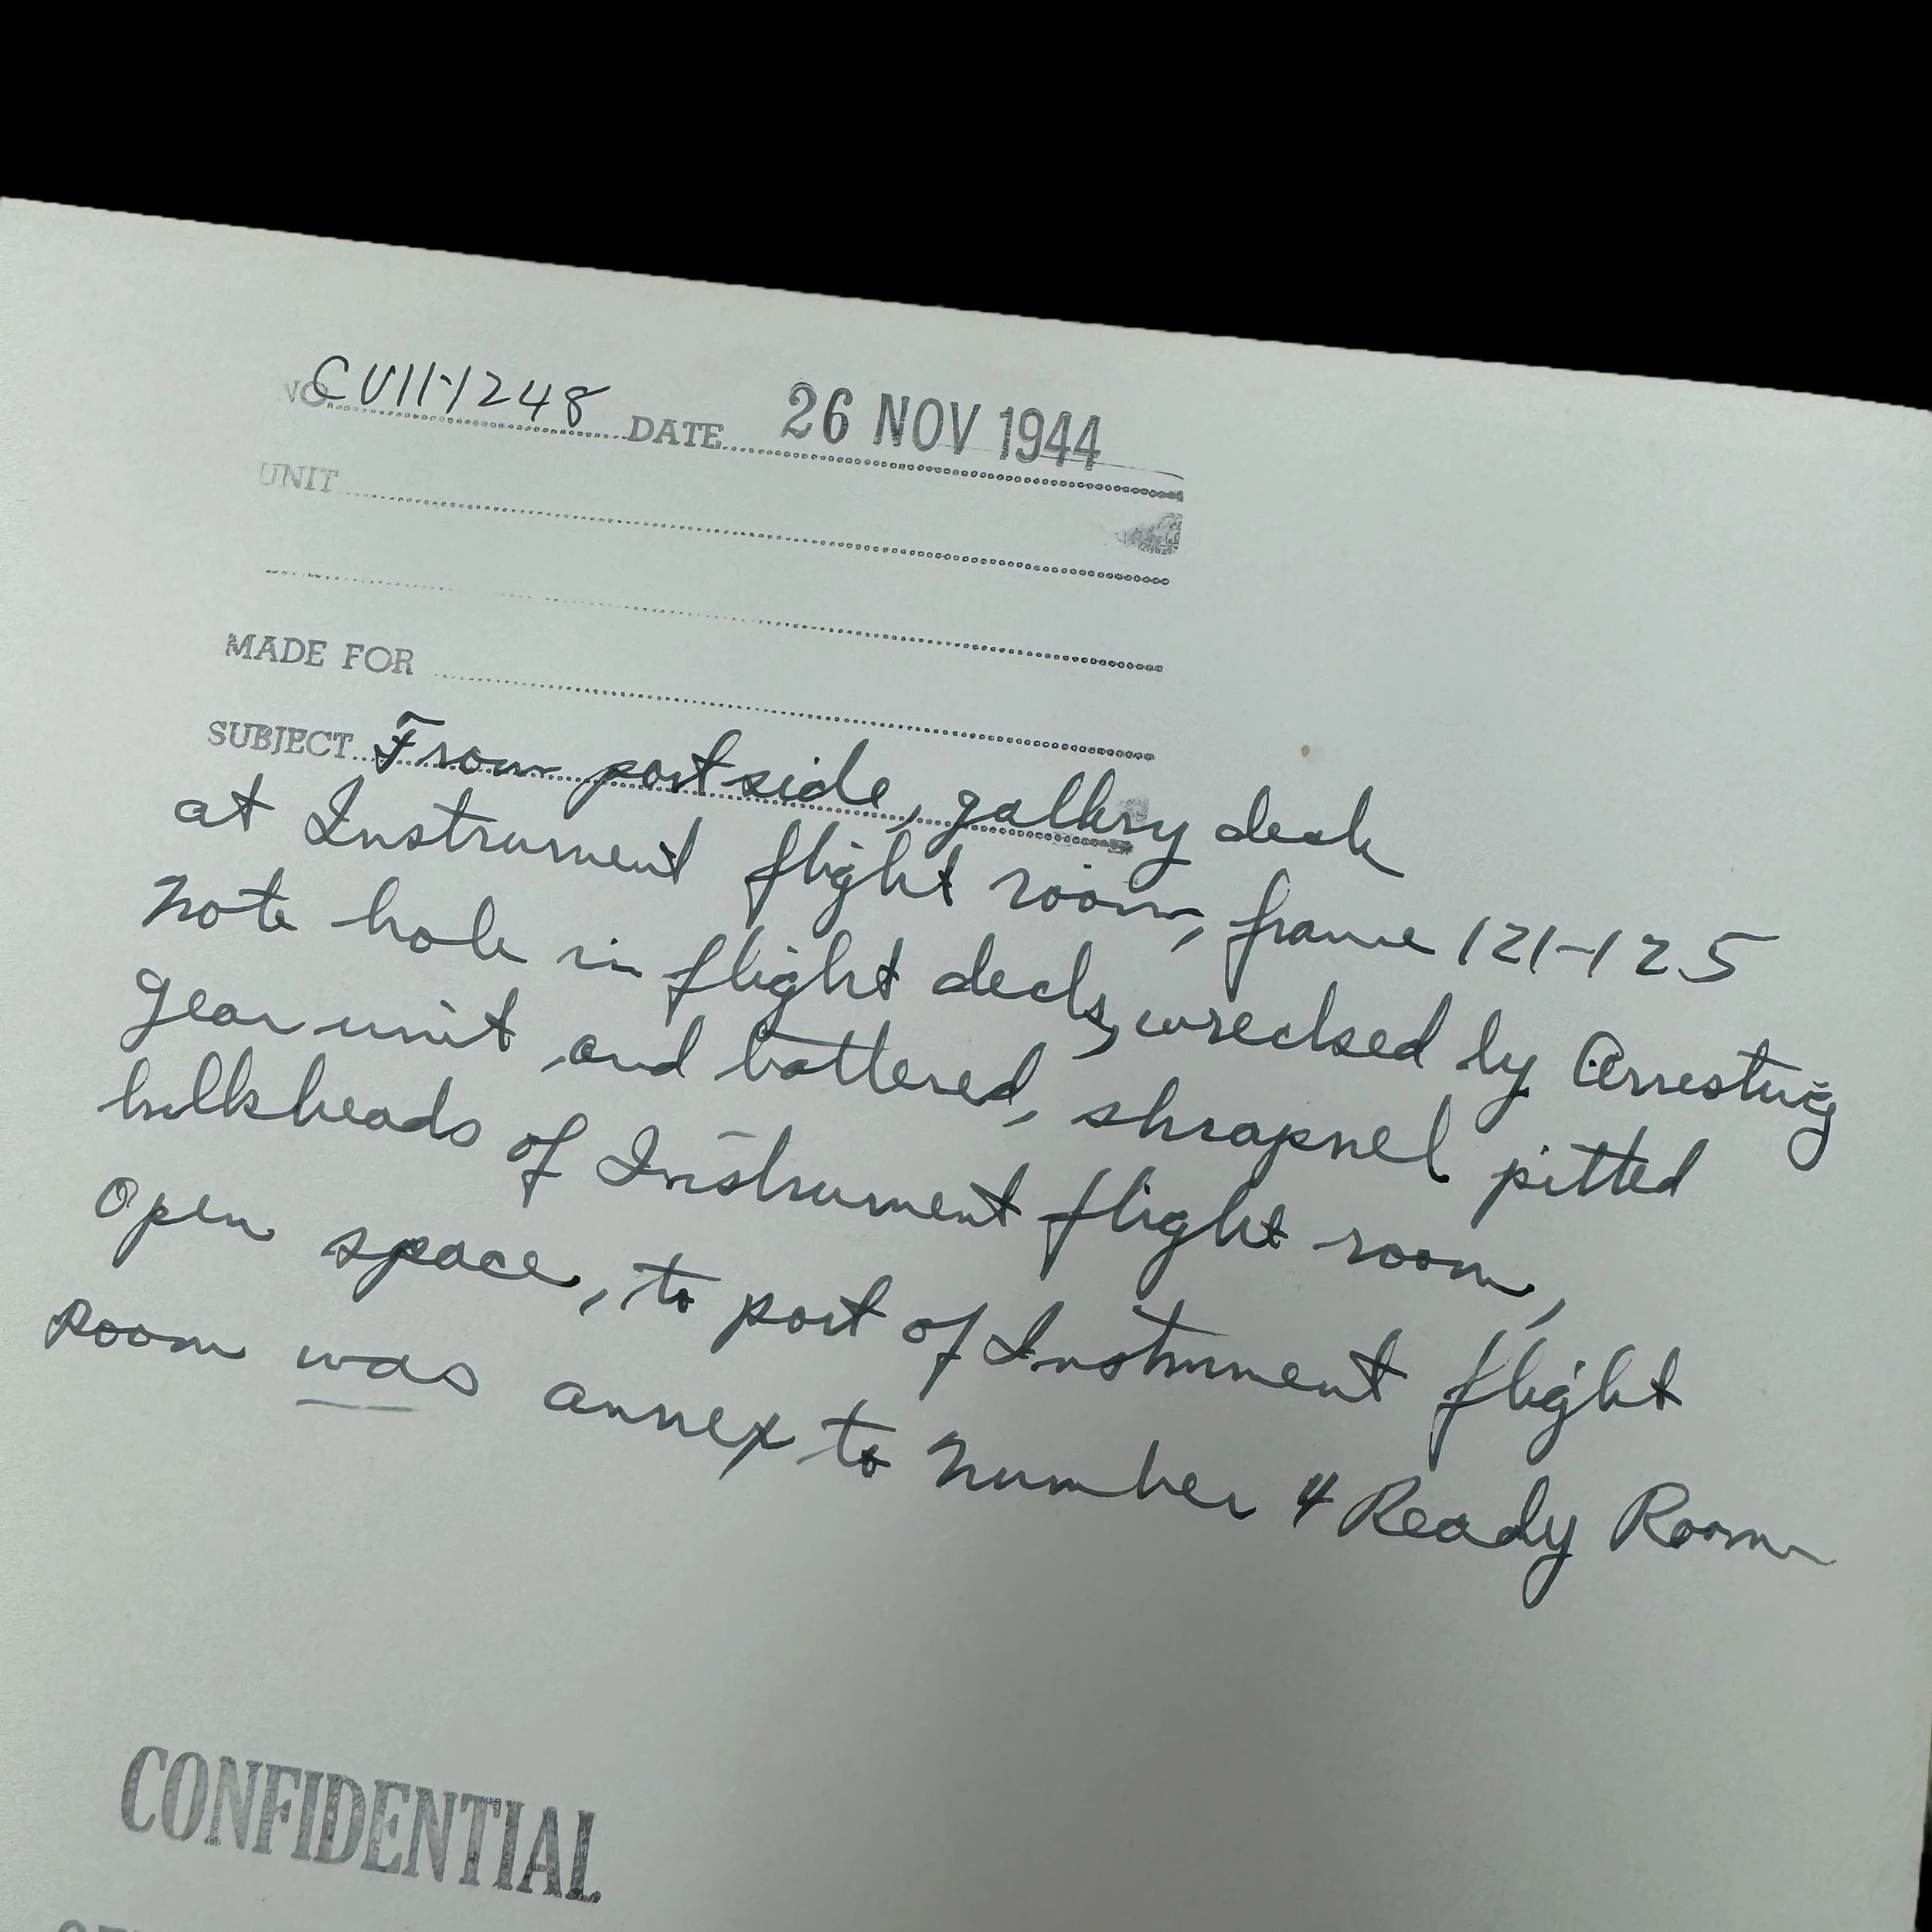 NO. CV11-1248 DATE 26 NOV 1944
UNIT
MADE FOR
SUBJECT From port side, gallery deck
at Instrument flight room, frame 121-125
Note hole in flight deck, wrecked by Arresting
gear unit and battered, shrapnel pitted
bulkheads of Instrument flight room,
Open space, to port of Instrument flight
Room was annex to Number 4 Ready Room
CONFIDENTIAL